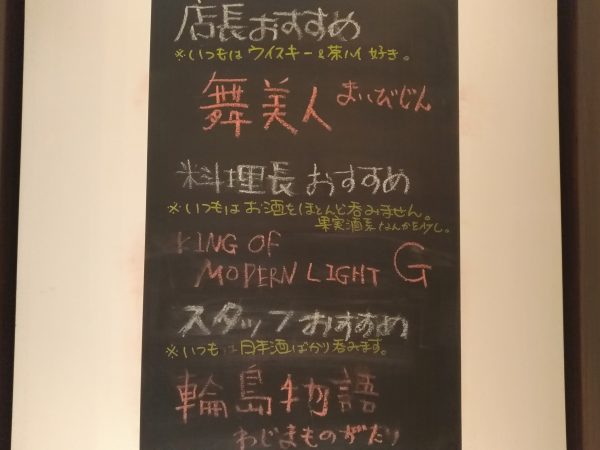 店長おすすめ
※いつもは ウイスキー&茶ハイ 好き。
舞美人 まいびじん
料理長おすすめ
※いつもは お酒をほとんど呑みません。
果実酒系なんかを少し。
KING OF
MODERN LIGHT G
スタッフおすすめ
※いつもは日本酒ばかり呑みます。
輪島物語
わじまものがたり